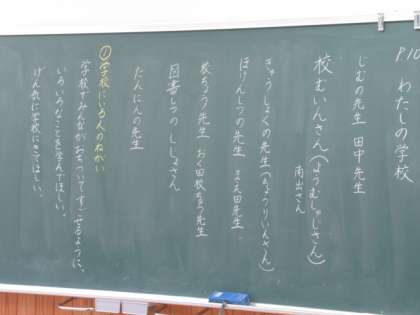 P.10 わたしの学校
じむの先生 田中先生
校むいんさん(ようむしゅじさん)
南出さん
きゅうしょくの先生(ちょうりいんさん)
ほけんしつの先生 まえ田先生
校ちょう先生 おく田校ちょう先生
図書しつの ししょさん
たんにんの先生
①学校にいる人のねがい
学校でみんながおちついてすごせるように。
いろいろなことを学んでほしい。
げん気に学校にきてほしい。